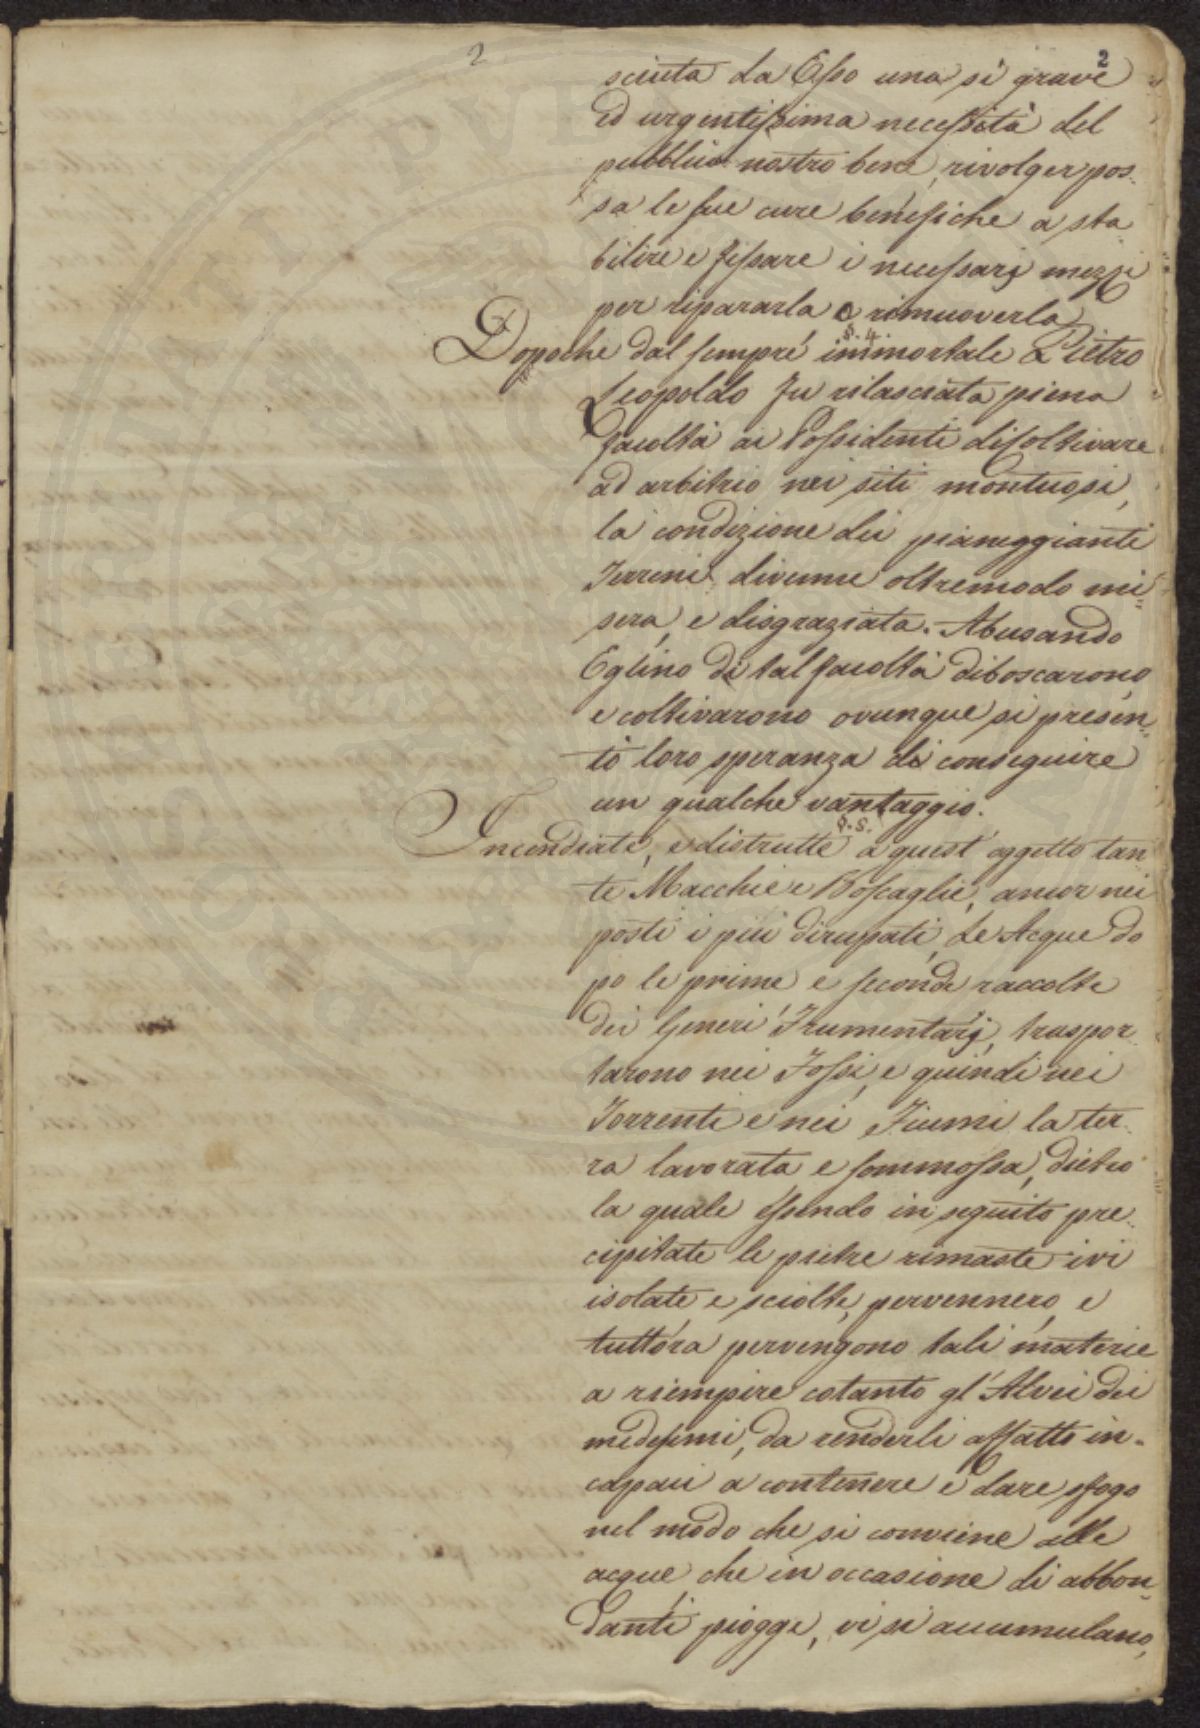 2 2
sciuta da Esso una sì grave
ed urgentissima necessità del
pubblico nostro bene, rivolger pos-
sa le sue cure benefiche a sta-
bilire e fissare i necessarj mezzi
per ripararla e rimuoverla.
§. 4.
Dopoche dal sempre immortale Pietro
Leopoldo fu rilasciata piena
facoltà ai Possidenti di coltivare
ad arbitrio nei siti montuosi,
la condizione dei pianeggianti
Terreni divenne oltremodo mi-
sera, e disgraziata. Abusando
Eglino di tal facoltà diboscarono,
e coltivarono ovunque si presen-
tò loro speranza di conseguire
un qualche vantaggio.
§. 5.
Incendiate, e distrutte a quest'oggetto tan
te Macchie e Boscaglie, ancor nei
posti i più dirupati, Le Acque do
po le prime e seconde raccolte
dei Generi Frumentarj, traspor-
tarono nei Fossi, e quindi nei
Torrenti e nei Fiumi la ter-
ra lavorata e sommossa, dietro
la quale essendo in seguito pre-
cipitate le pietre rimaste ivi
isolate e sciolte, pervennero, e
tuttora pervengono tali materie
a riempire cotanto gl'Alvei dei
medesimi, da renderli affatto in-
capaci a contenere e dare sfogo
nel modo che si conviene alle
acque, che in occasione di abbon-
danti piogge, vi si accumulano,